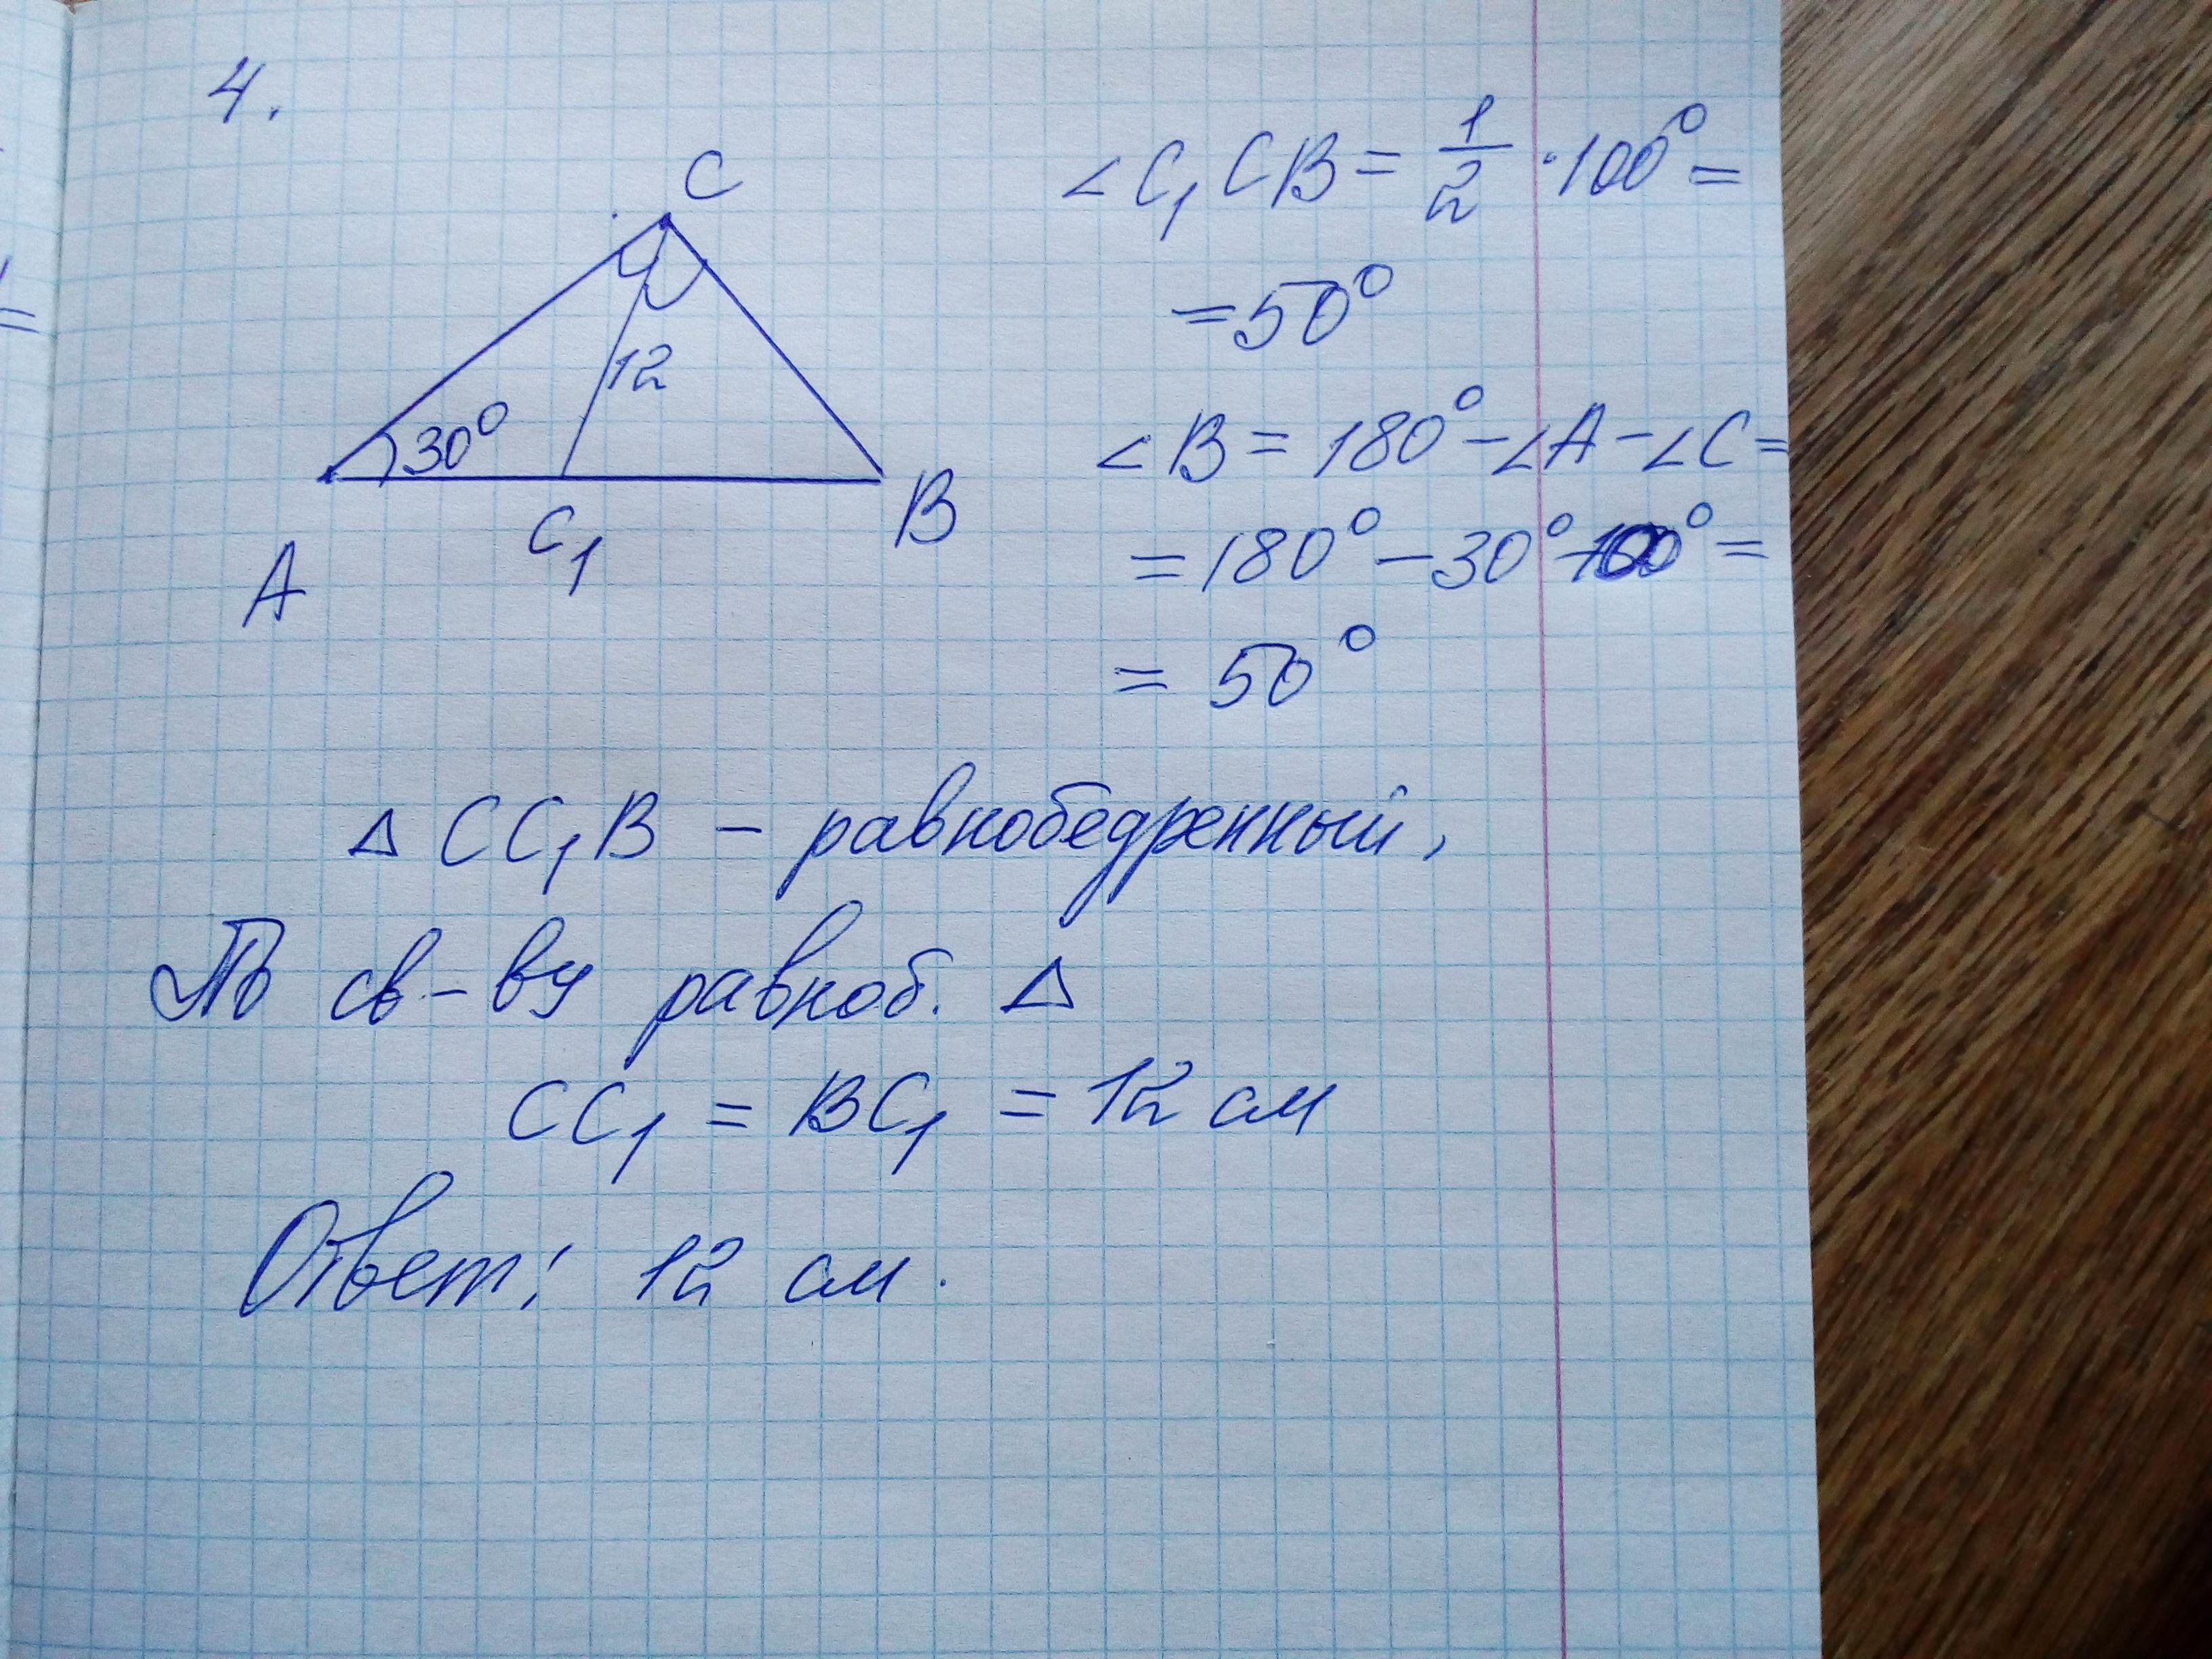 4.
C
12
30°
A
C₁
B
∠C₁CB = 1/2 · 100° =
= 50°
∠B = 180° - ∠A - ∠C =
= 180° - 30° - 100° =
= 50°
△ CC₁B - равнобедренный,
По св-ву равноб. △
CC₁ = BC₁ = 12 см
Ответ: 12 см.
=